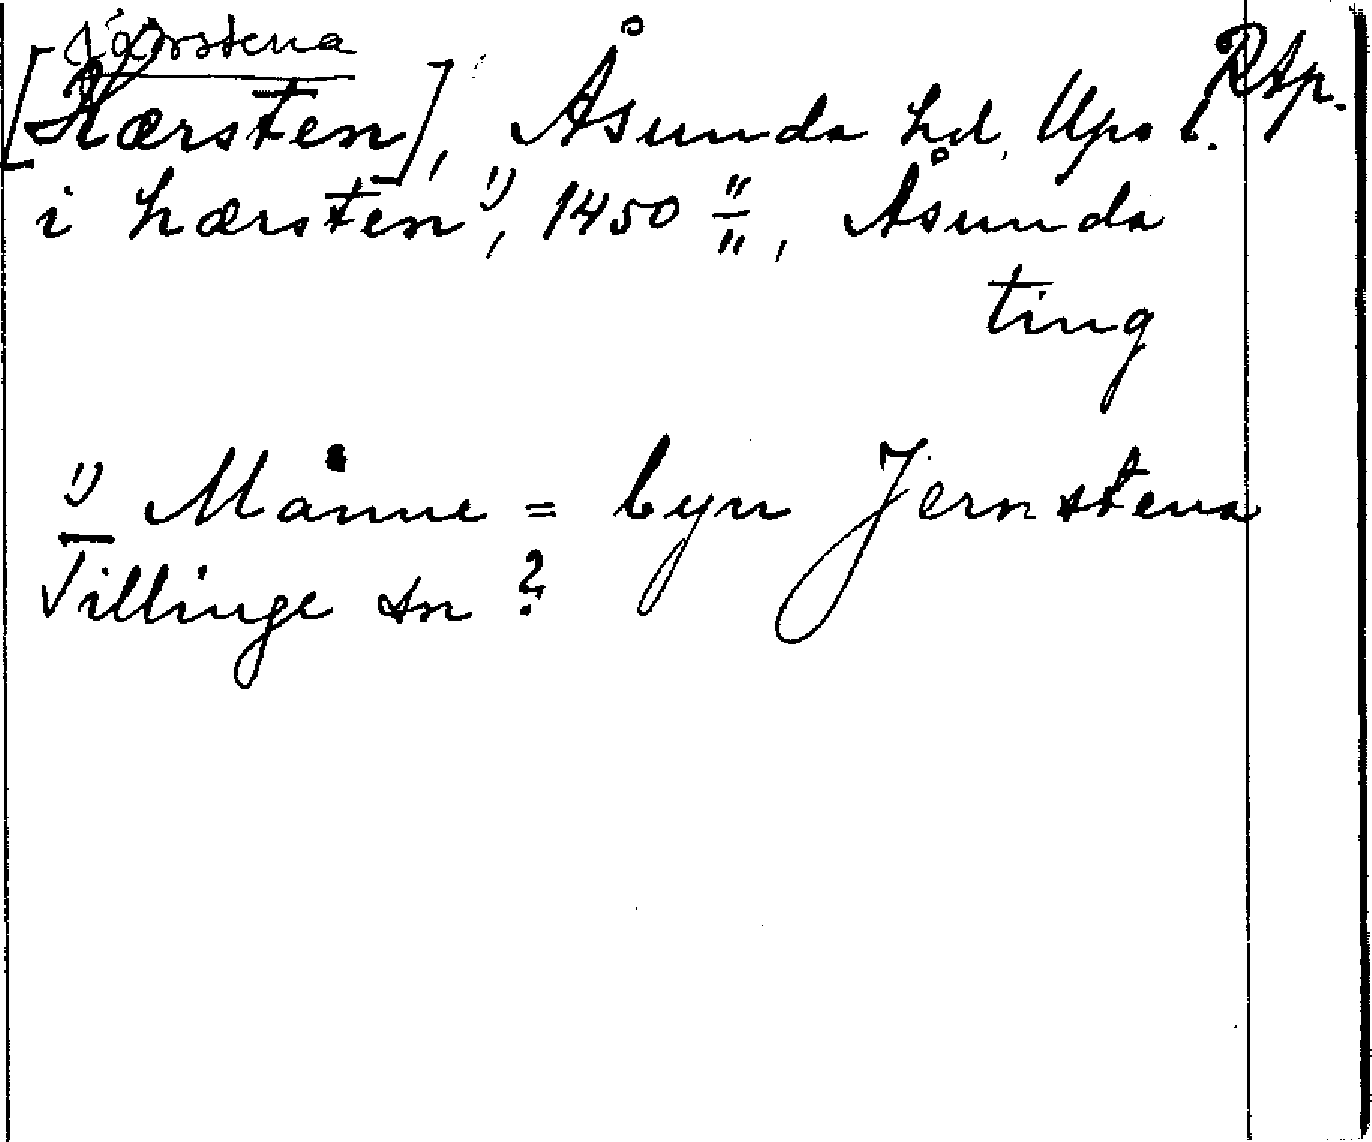 Järstena
[Hærsten], Åsunda hd, Ups l. RAp.
i hærsten¹⁾, 1450 "/", Åsunda
ting
¹⁾ Månne = byn Jernstena
Tillinge sn ?